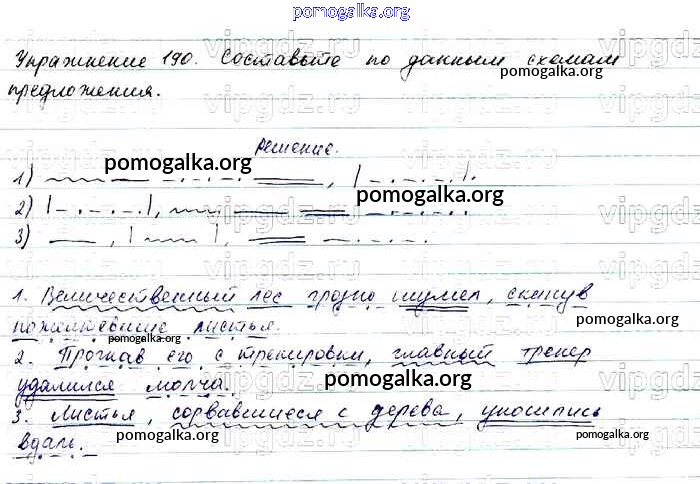 pomogalka.org
Упражнение 190. Составьте по данным схемам
pomogalka.org
предложения.
Решение.
pomogalka.org
1)
pomogalka.org
2)
3)
1. Величественный лес грозно шумел, скинув
пожелтевшие листья.
pomogalka.org
pomogalka.org
2. Прогнав его с тренировки, главный тренер
удалился молча.
pomogalka.org
3. Листья, сорвавшиеся с дерева, уносились
pomogalka.org
pomogalka.org
вдаль.
vipgdz.ru